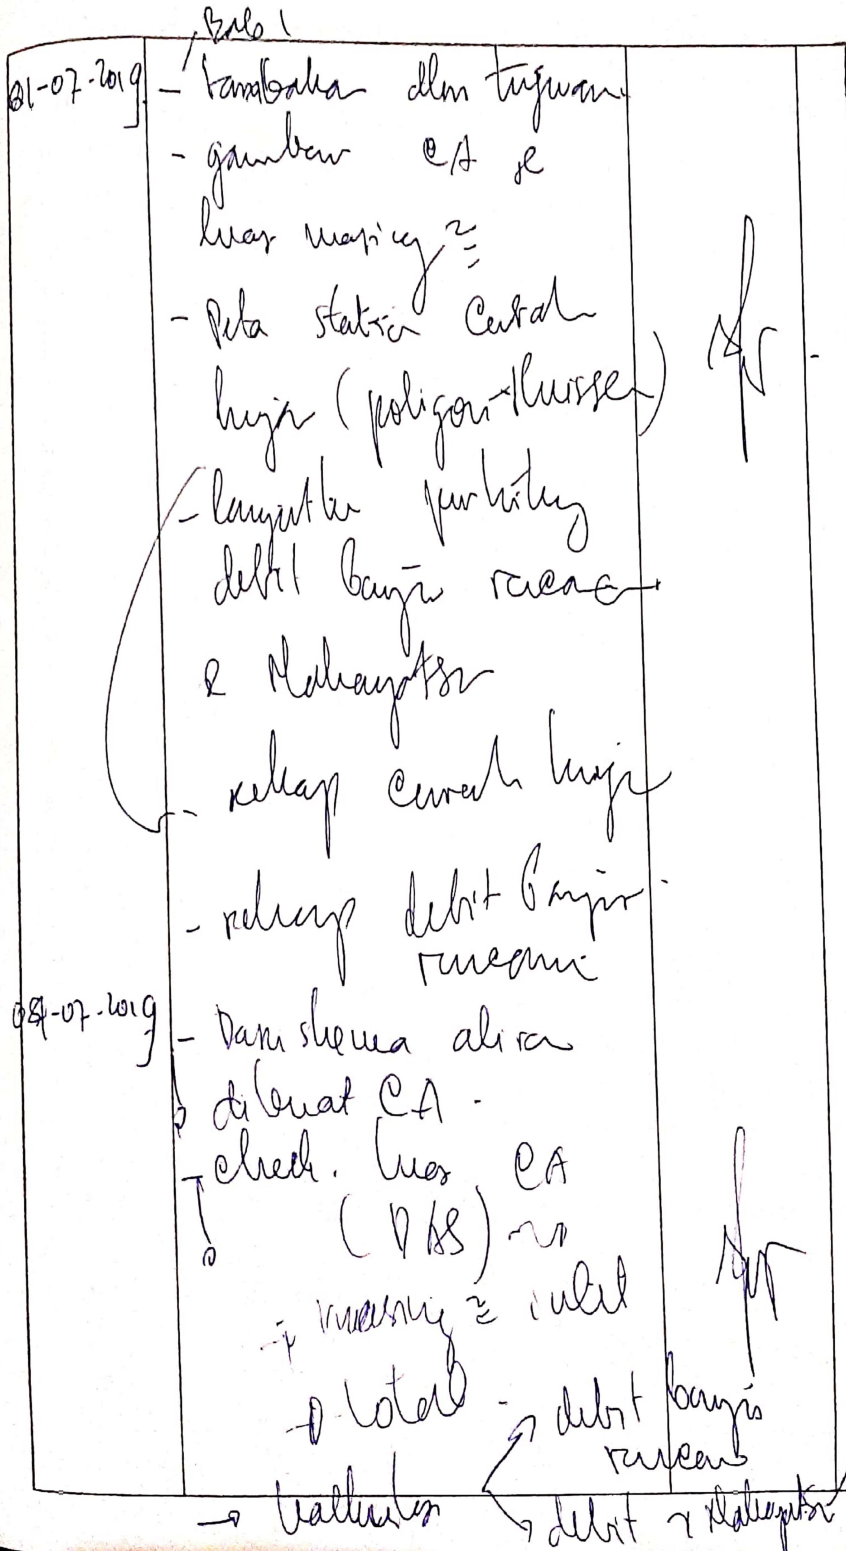 Bab 1
01-07-2019 - tambahan dlm tujuan
- gambar CA &
luas masing²
- Peta stasiun Curah
hujan (poligon Thiessen)
- lanjutkan perhitung
debit banjir rencana
& Nakayasu
- rekap curah hujan
- rekap debit banjir
rencana
08-07-2019 - Dari skema aliran
dibuat CA.
- check. luas CA
(DAS)
→ masing² inlet
→ total - debit banjir
rencana
→ debit Nakayasu